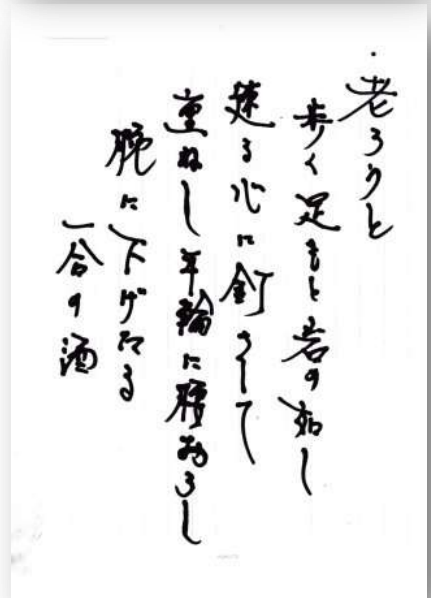 老ろうと
歩く足もと岩の如し
速る心に釘さして
重ねし年輪に腰おろし
腕に下げたる
一合の酒